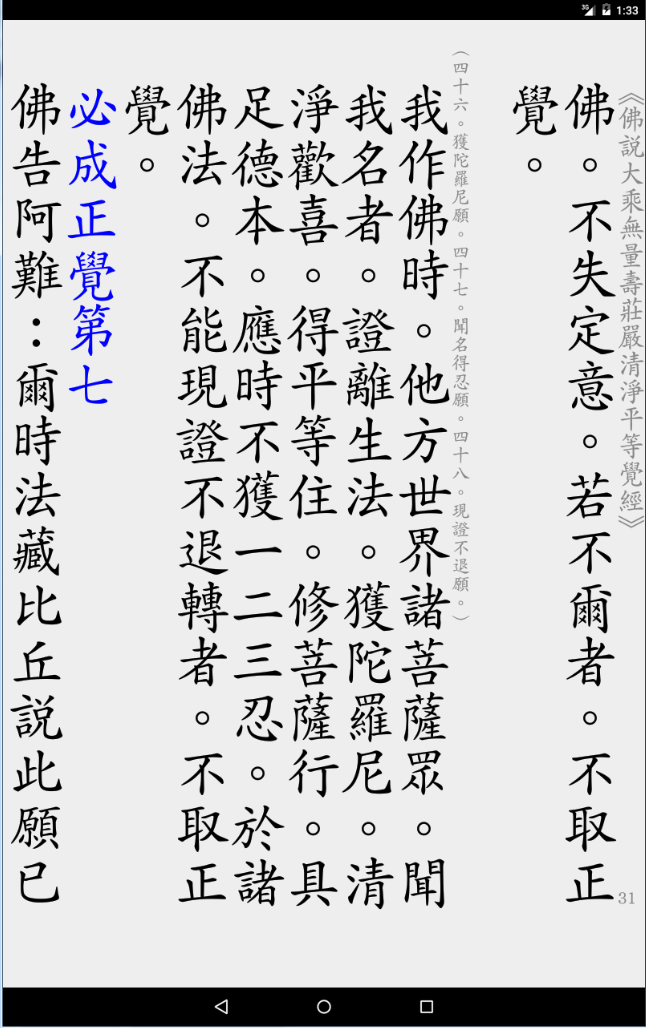 3G 1:33
《佛説大乘無量壽莊嚴清淨平等覺經》
31
佛。不失定意。若不爾者。不取正
覺。
（四十六。獲陀羅尼願。四十七。聞名得忍願。四十八。現證不退願。）
我作佛時。他方世界諸菩薩眾。聞
我名者。證離生法。獲陀羅尼。清
淨歡喜。得平等住。修菩薩行。具
足德本。應時不獲一二三忍。於諸
佛法。不能現證不退轉者。不取正
覺。
必成正覺第七
佛告阿難：爾時法藏比丘説此願已